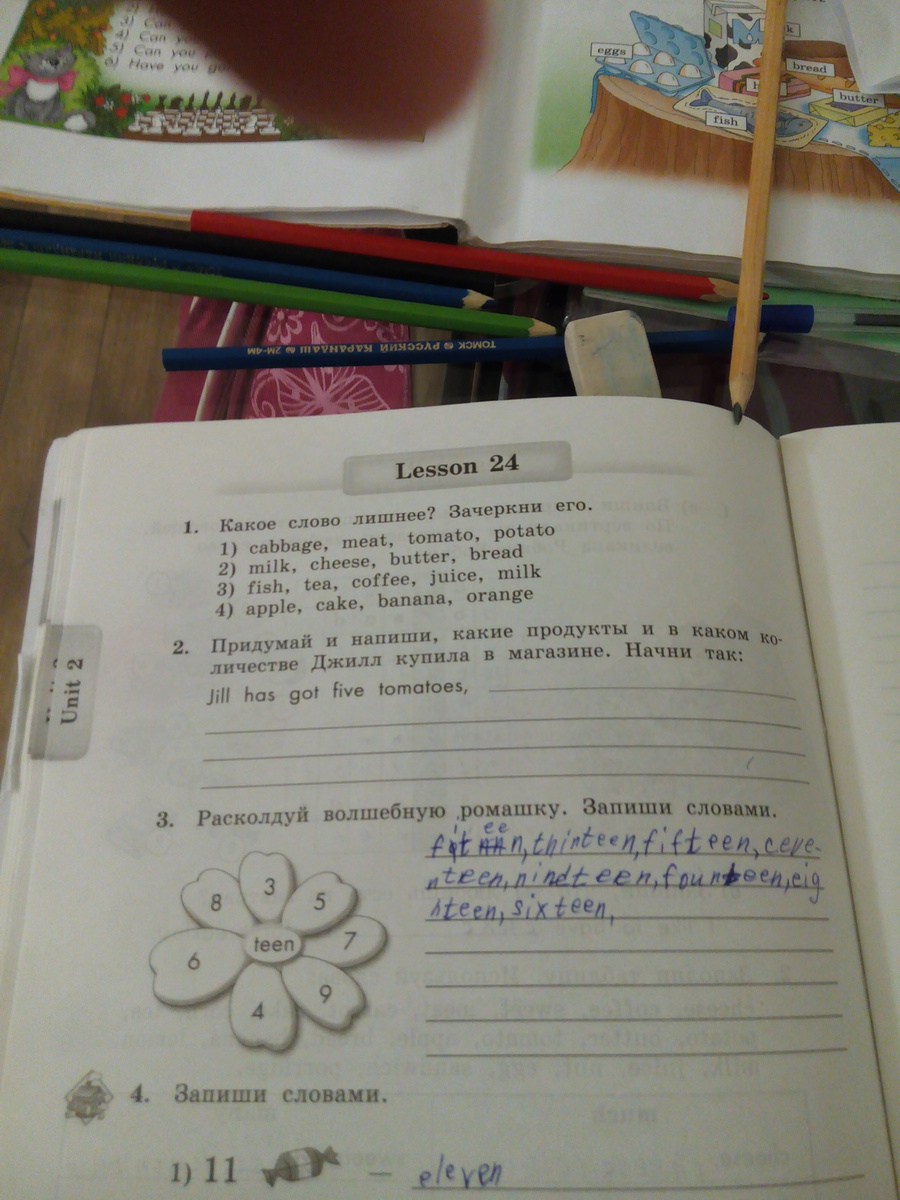 3) Can
4) Can you
5) Can you
6) Have you go
eggs
M
k
bread
butter
fish
ТОМСК РУССКИЙ КАРАНДАШ 2М-4М
Lesson 24
1. Какое слово лишнее? Зачеркни его.
1) cabbage, meat, tomato, potato
2) milk, cheese, butter, bread
3) fish, tea, coffee, juice, milk
4) apple, cake, banana, orange
Unit 2
2. Придумай и напиши, какие продукты и в каком ко-
личестве Джилл купила в магазине. Начни так:
Jill has got five tomatoes,
3. Расколдуй волшебную ромашку. Запиши словами.
thinteen, fifteen, ceve-
nteen, nindteen, fourteen, eig
hteen, sixteen,
8 3 5
teen 7
6 9
4
4. Запиши словами.
1) 11 — eleven